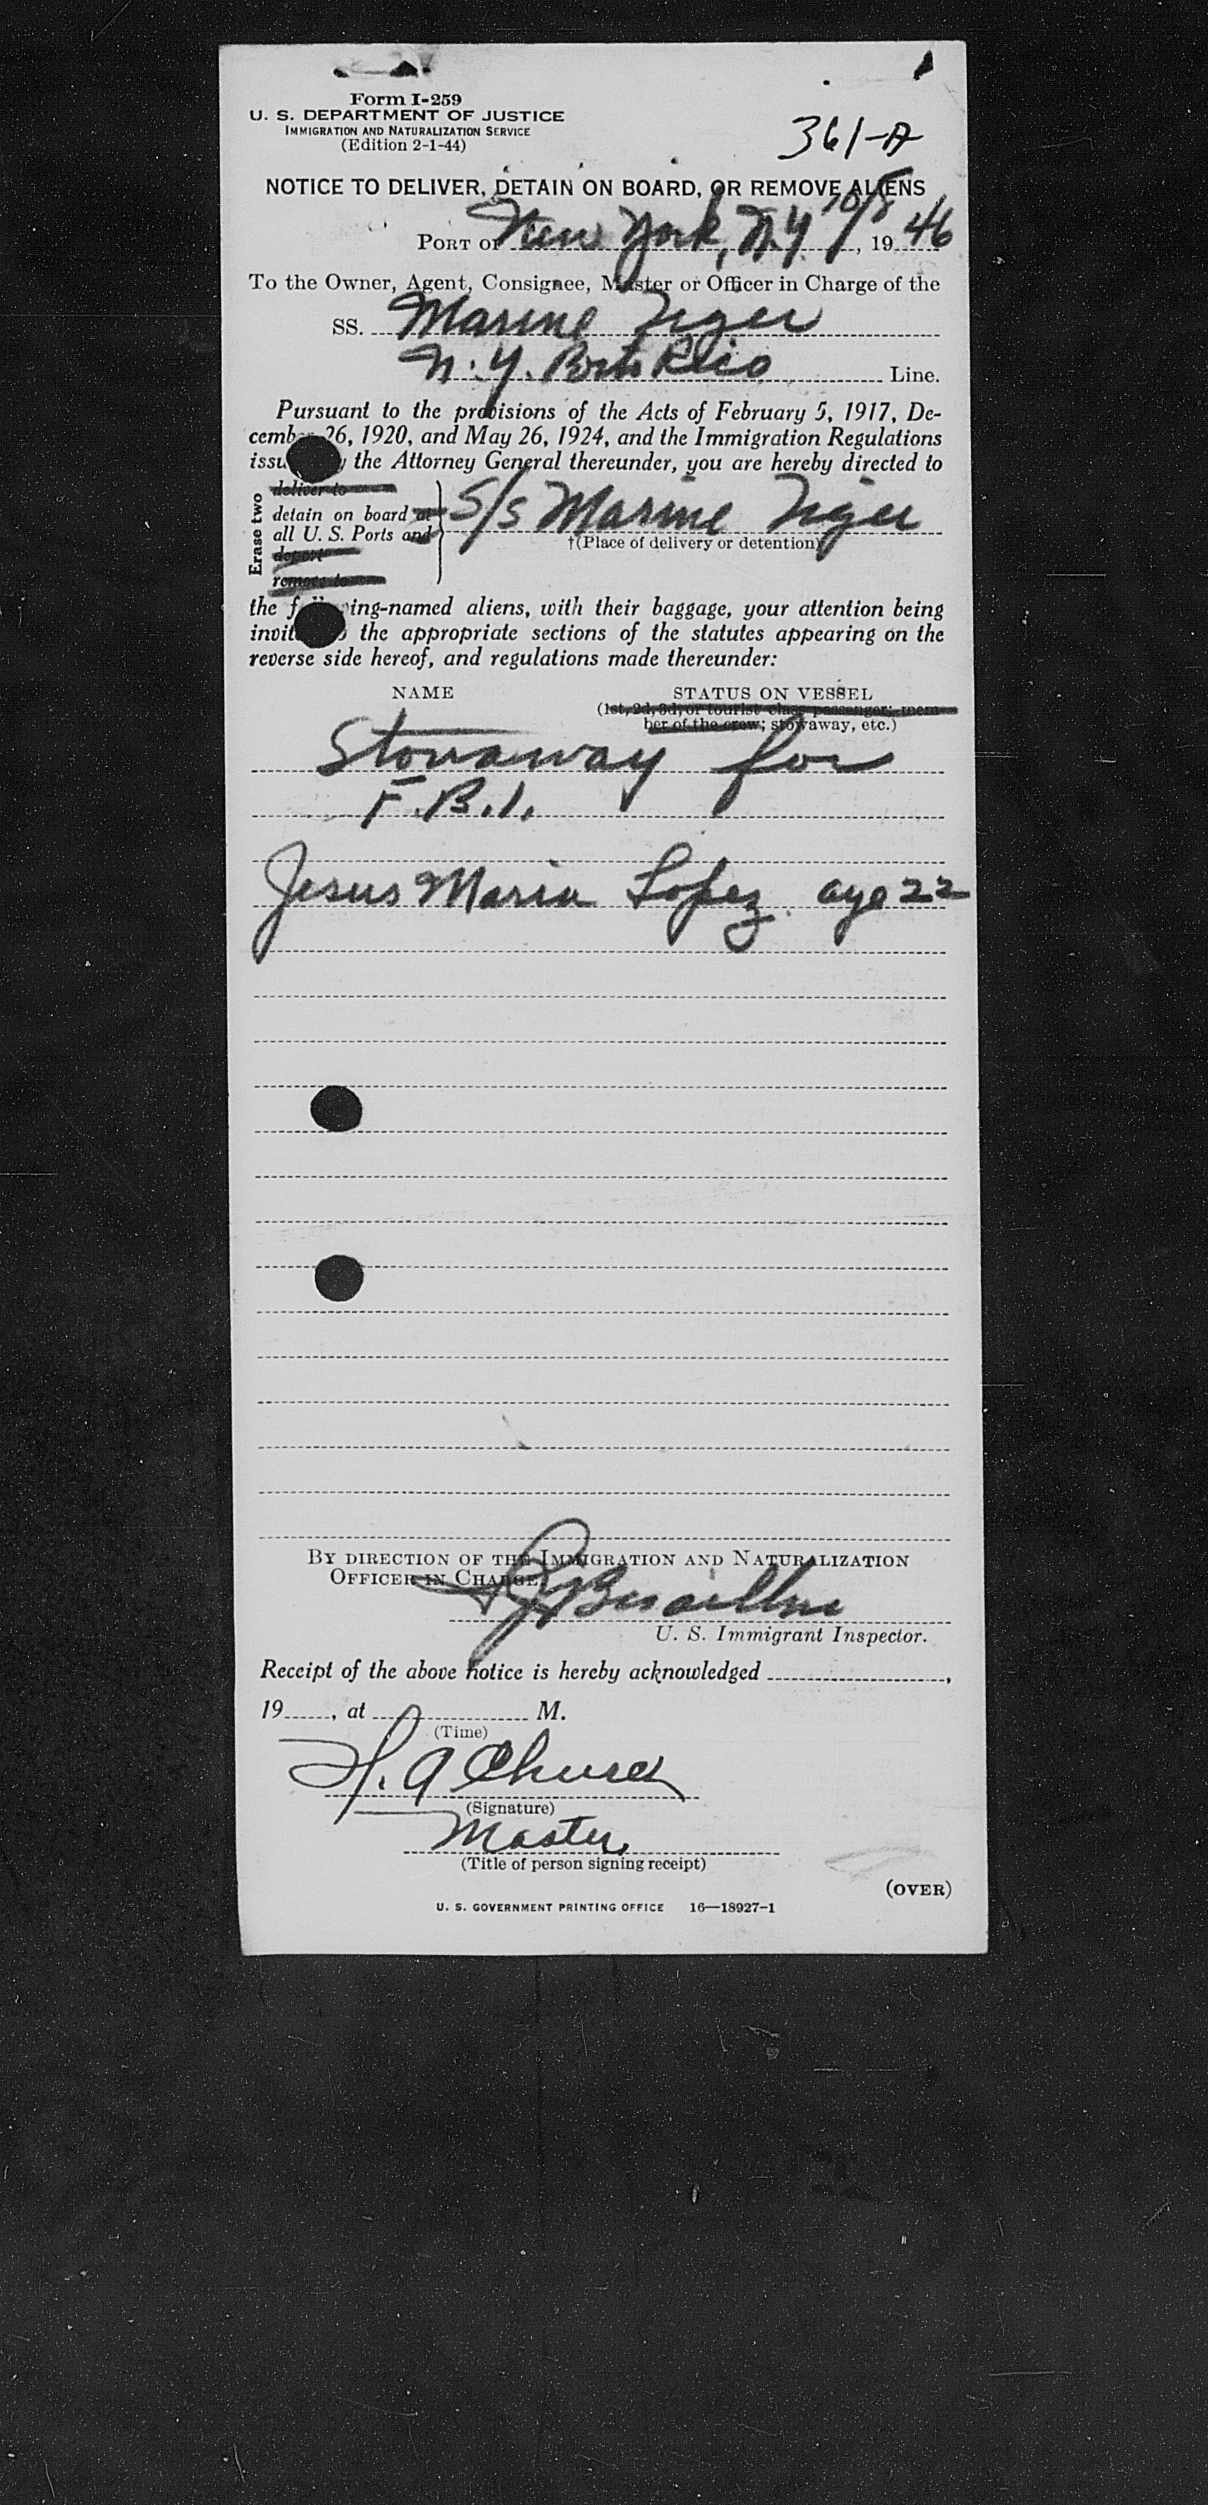 Form I-259
U. S. DEPARTMENT OF JUSTICE
IMMIGRATION AND NATURALIZATION SERVICE
(Edition 2-1-44)
361-A
NOTICE TO DELIVER, DETAIN ON BOARD, OR REMOVE ALIENS
PORT OF New York, N.Y. 10/8, 1946
To the Owner, Agent, Consignee, Master or Officer in Charge of the
SS. Marine Tiger
N.Y. Porto Rico Line.
Pursuant to the provisions of the Acts of February 5, 1917, De-
cember 26, 1920, and May 26, 1924, and the Immigration Regulations
issued by the Attorney General thereunder, you are hereby directed to
Erase two
deliver to
detain on board at S/S Marine Tiger
all U. S. Ports and †(Place of delivery or detention)
deport
remove to
the following-named aliens, with their baggage, your attention being
invited to the appropriate sections of the statutes appearing on the
reverse side hereof, and regulations made thereunder:
NAME STATUS ON VESSEL
(1st, 2d, 3d, or tourist class passenger; mem-
ber of the crew; stowaway, etc.)
Stowaway for
F.B.I.
Jesus Maria Lopez age 22
BY DIRECTION OF THE IMMIGRATION AND NATURALIZATION
OFFICER IN CHARGE
U. S. Immigrant Inspector.
Receipt of the above notice is hereby acknowledged ,
19 , at M.
(Time)
H. A
(Signature)
Master
(Title of person signing receipt)
(OVER)
U. S. GOVERNMENT PRINTING OFFICE 16—18927-1